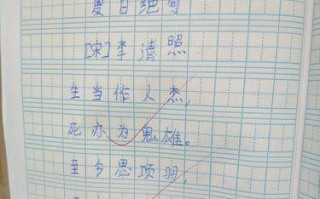 夏日绝句
[宋]李清照
生当作人杰，
死亦为鬼雄。
至今思项羽，